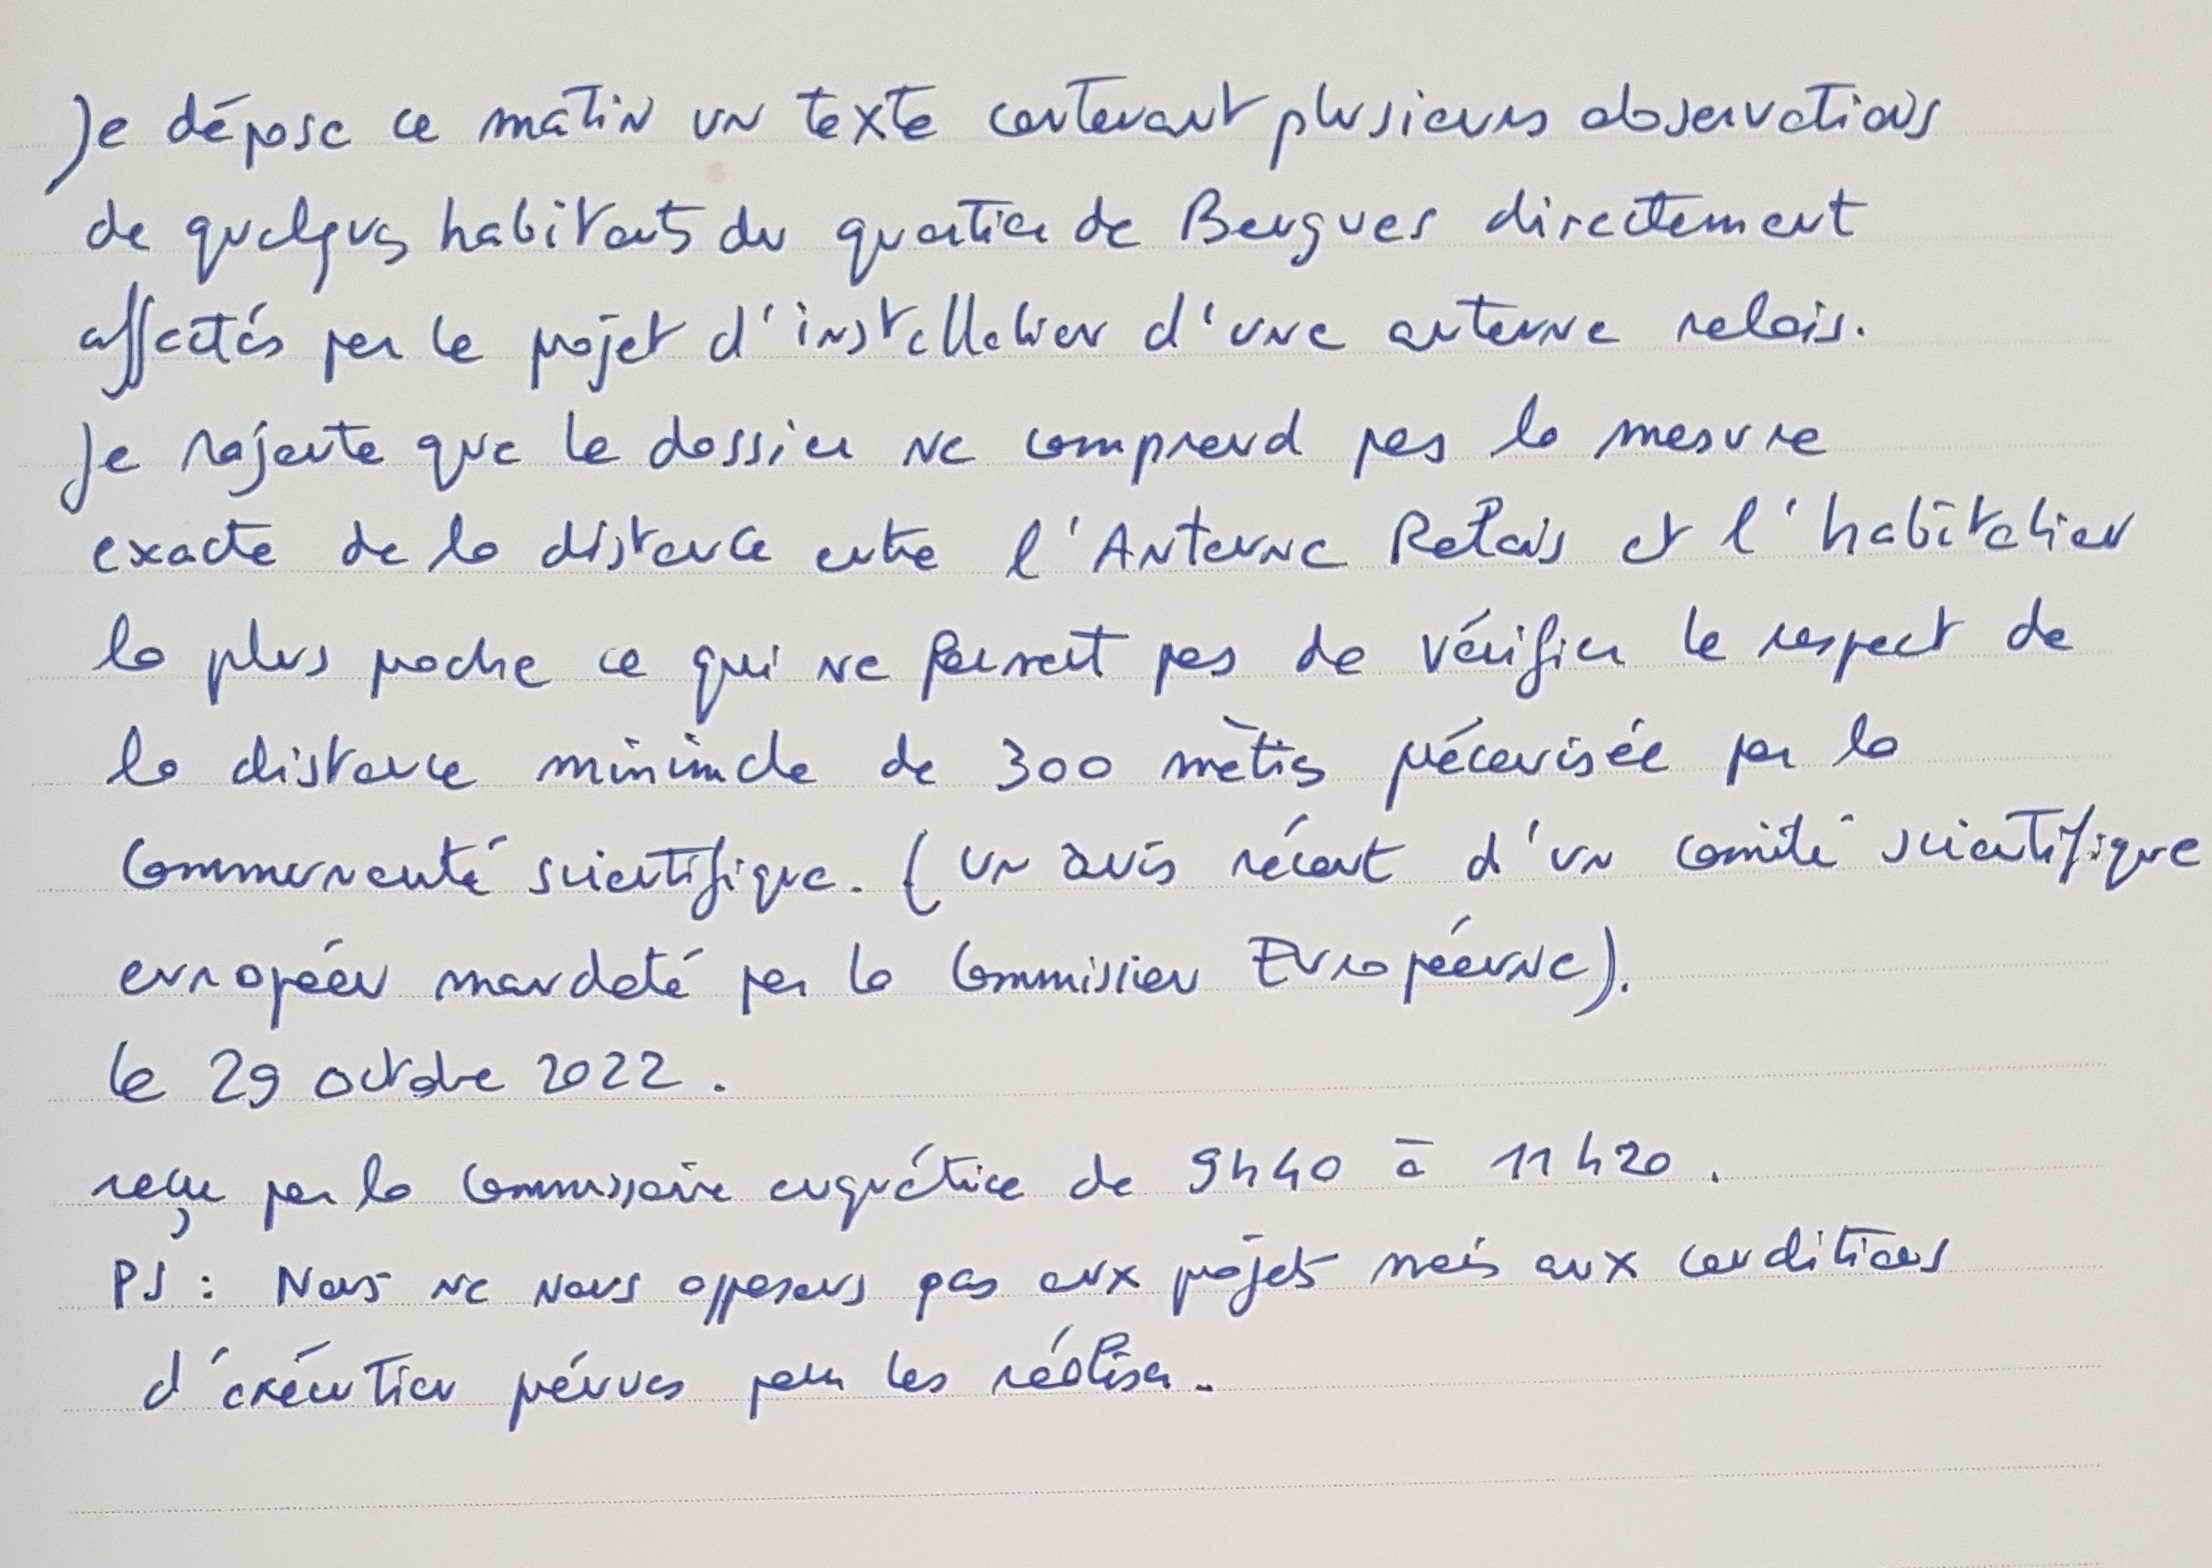 Je dépose ce matin un texte contenant plusieurs observations
de quelques habitants du quartier de Bergues directement
affectés par le projet d'installation d'une antenne relais.
Je rajoute que le dossier ne comprend pas la mesure
exacte de la distance entre l'Antenne Relais et l'habitation
la plus proche ce qui ne permet pas de vérifier le respect de
la distance minimale de 300 mètres préconisée par la
Communauté scientifique. (un avis récent d'un comité scientifique
européen mandaté par la Commission Européenne).
le 29 octobre 2022.
reçu par la Commissaire enquêtrice de 9h40 à 11h20.
PS : Nous ne nous opposons pas aux projets mais aux conditions
d'exécution prévues pour les réaliser.